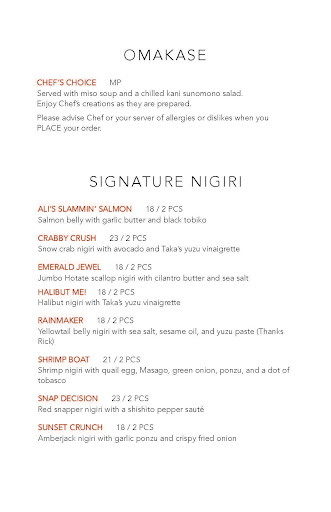 OMAKASE
CHEF'S CHOICE MP
Served with miso soup and a chilled kani sunomono salad.
Enjoy Chef's creations as they are prepared.
Please advise Chef or your server of allergies or dislikes when you
PLACE your order.
SIGNATURE NIGIRI
ALI'S SLAMMIN' SALMON 18 / 2 PCS
Salmon belly with garlic butter and black tobiko
CRABBY CRUSH 23 / 2 PCS
Snow crab nigiri with avocado and Taka's yuzu vinaigrette
EMERALD JEWEL 18 / 2 PCS
Jumbo Hotate scallop nigiri with cilantro butter and sea salt
HALIBUT ME! 18 / 2 PCS
Halibut nigiri with Taka's yuzu vinaigrette
RAINMAKER 18 / 2 PCS
Yellowtail belly nigiri with sea salt, sesame oil, and yuzu paste (Thanks
Rick)
SHRIMP BOAT 21 / 2 PCS
Shrimp nigiri with quail egg, Masago, green onion, ponzu, and a dot of
tobasco
SNAP DECISION 23 / 2 PCS
Red snapper nigiri with a shishito pepper sauté
SUNSET CRUNCH 18 / 2 PCS
Amberjack nigiri with garlic ponzu and crispy fried onion